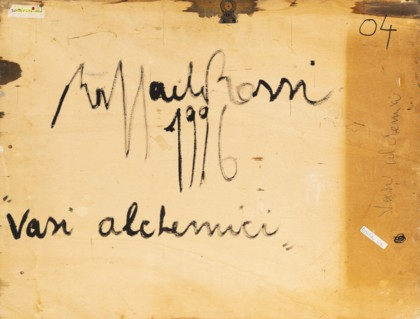 04
Raffaele Rossi
1996
"Vasi alchemici"
Vasi alchemici